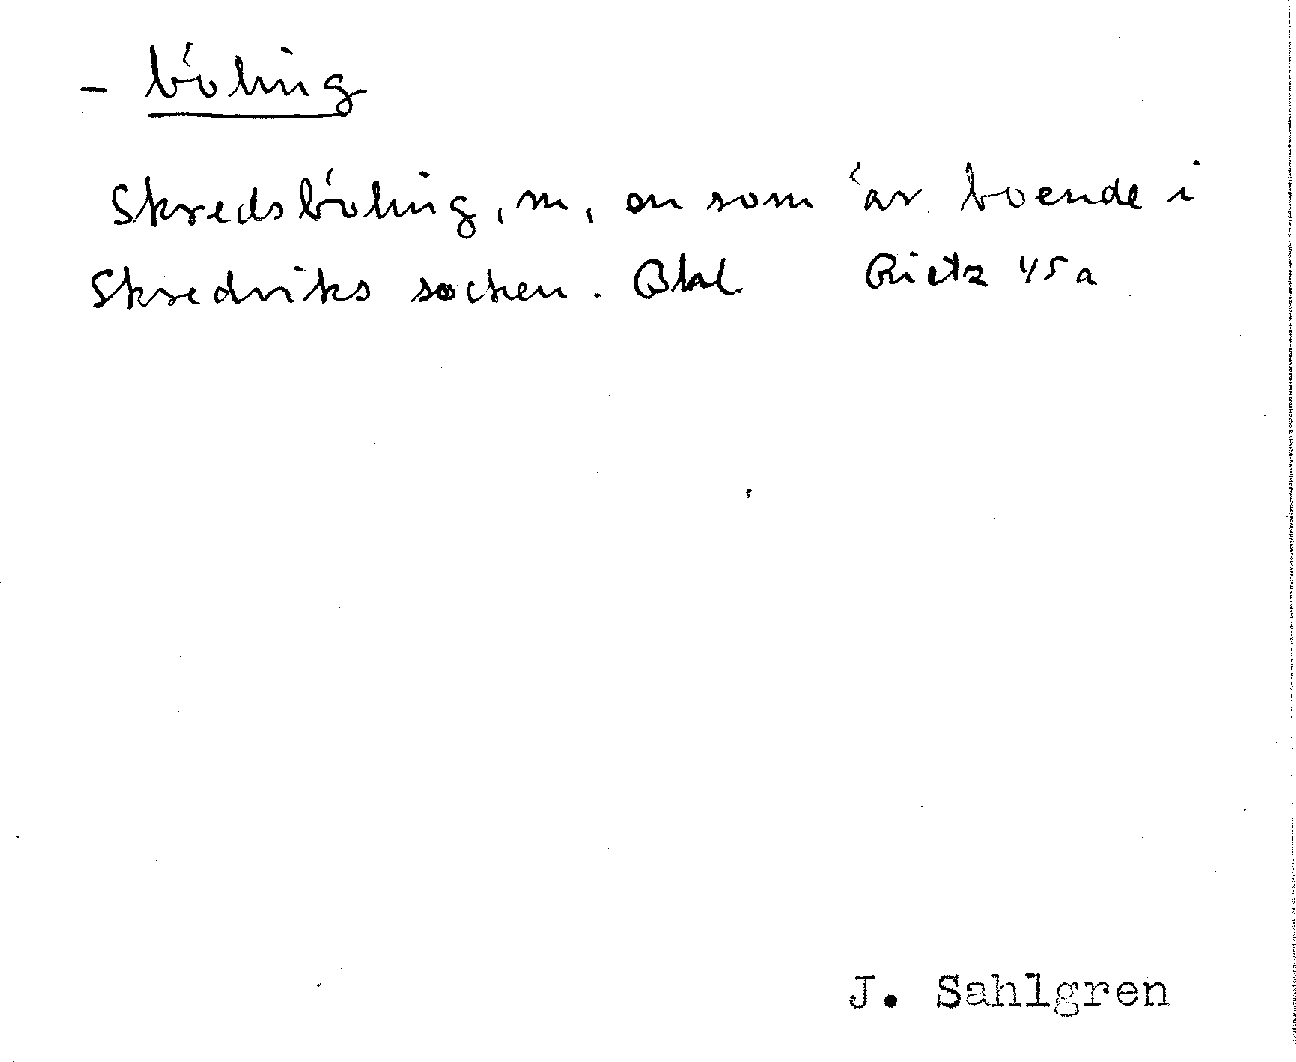 - böling
Skredsböling, m, en som är boende i
Skredviks socken. Bhl Rietz 45a
J. Sahlgren